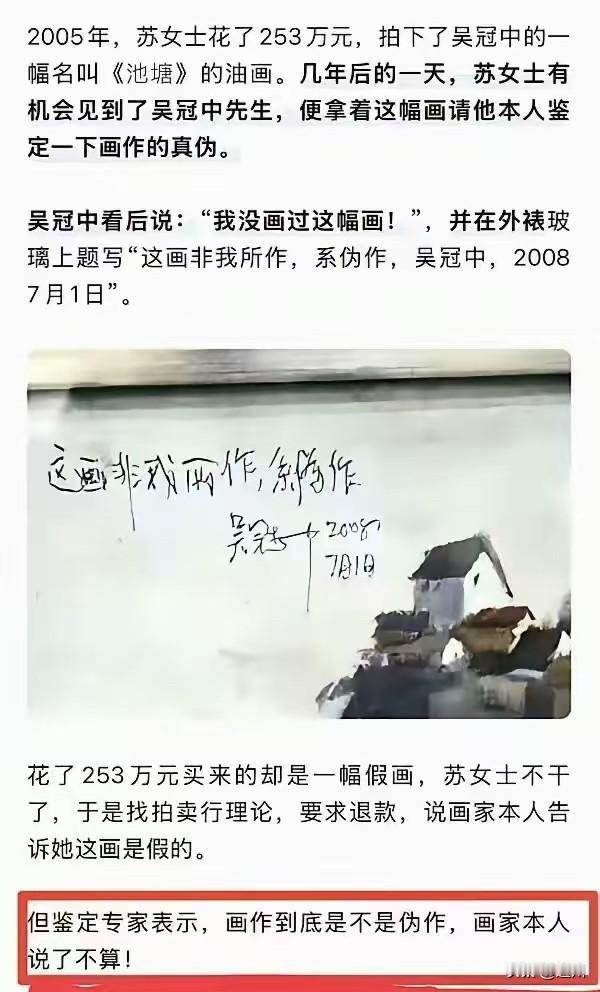 2005年，苏女士花了253万元，拍下了吴冠中的一
幅名叫《池塘》的油画。几年后的一天，苏女士有
机会见到了吴冠中先生，便拿着这幅画请他本人鉴
定一下画作的真伪。
吴冠中看后说：“我没画过这幅画！”，并在外裱玻
璃上题写“这画非我所作，系伪作，吴冠中，2008
7月1日”。
这画非我所作，系伪作
吴冠中 2008
7月1日
花了253万元买来的却是一幅假画，苏女士不干
了，于是找拍卖行理论，要求退款，说画家本人告
诉她这画是假的。
但鉴定专家表示，画作到底是不是伪作，画家本人
说了不算！